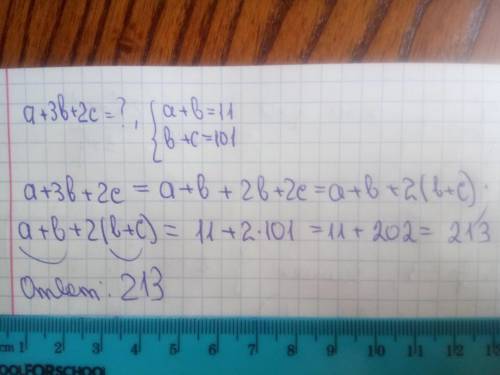 a+3b+2c=?, { a+b=11
b+c=101
a+3b+2c = a+b+2b+2c=a+b+2(b+c);
a+b+2(b+c) = 11+2·101 =11+202= 213
Ответ: 213
cm 1 2 3 4 5 6 7 8 9 10 11 12 13
OOLFORSCHOOL